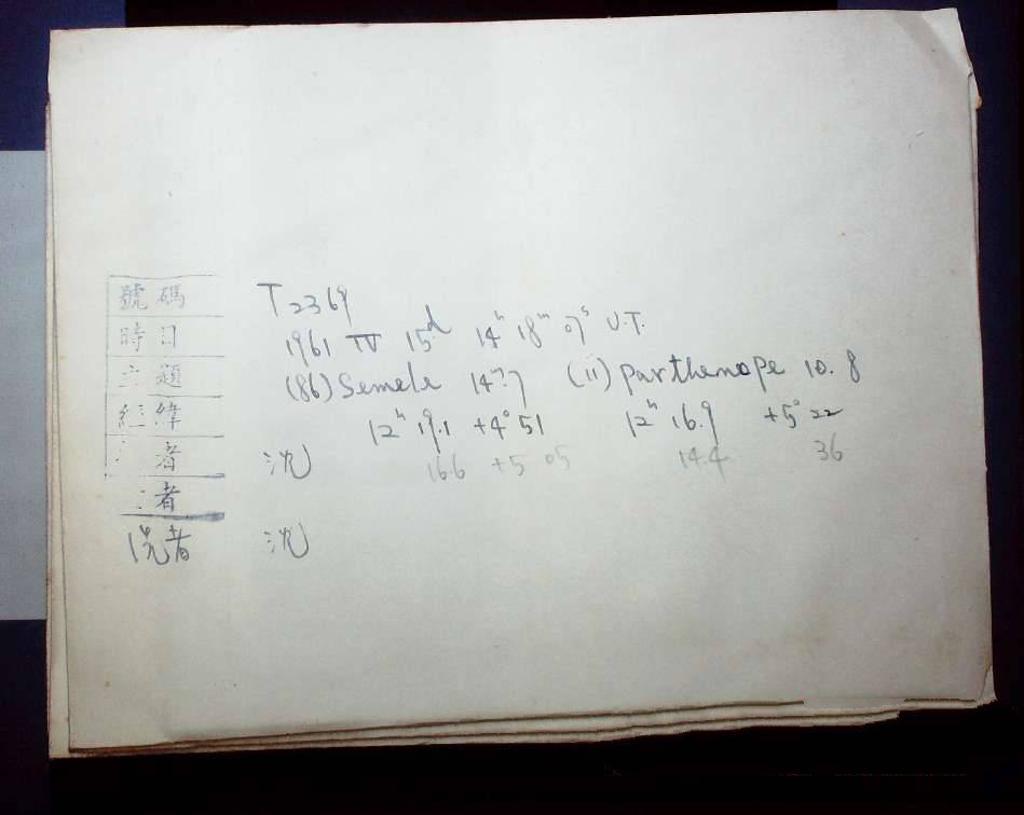 號碼 T2369
時日 1961 IV 15ᵈ 14ʰ 18ᵐ 07ˢ U.T.
題 (86) Semele 14ᵐ.7 (11) Parthenope 10.8
經緯 12ʰ 19.1 +4° 51 12ʰ 16.9 +5° 22
者 沈 16.6 +5 05 14.4 36
者
洗者 沈